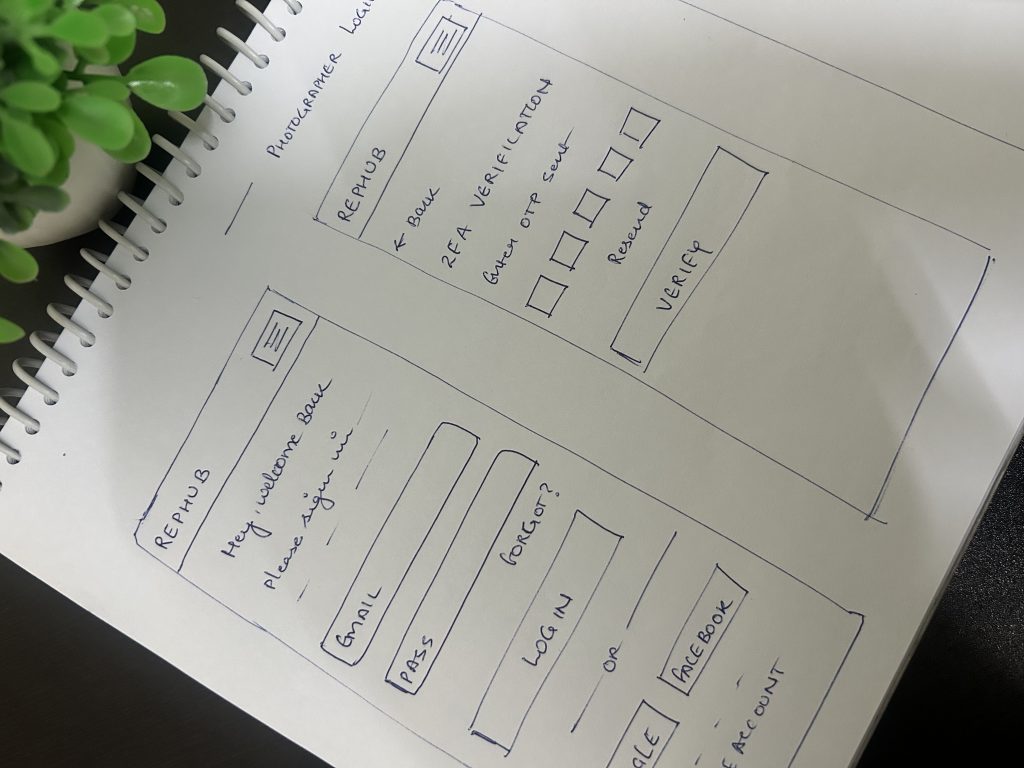 PHOTOGRAPHER
REPHUB
Hey, welcome BACK
please sign in
EMAIL
PASS
FORGOT?
LOG IN
OR
FACEBOOK
ACCOUNT
REPHUB
← BACK
2FA VERIFICATION
Enter OTP sent
Resend
VERIFY